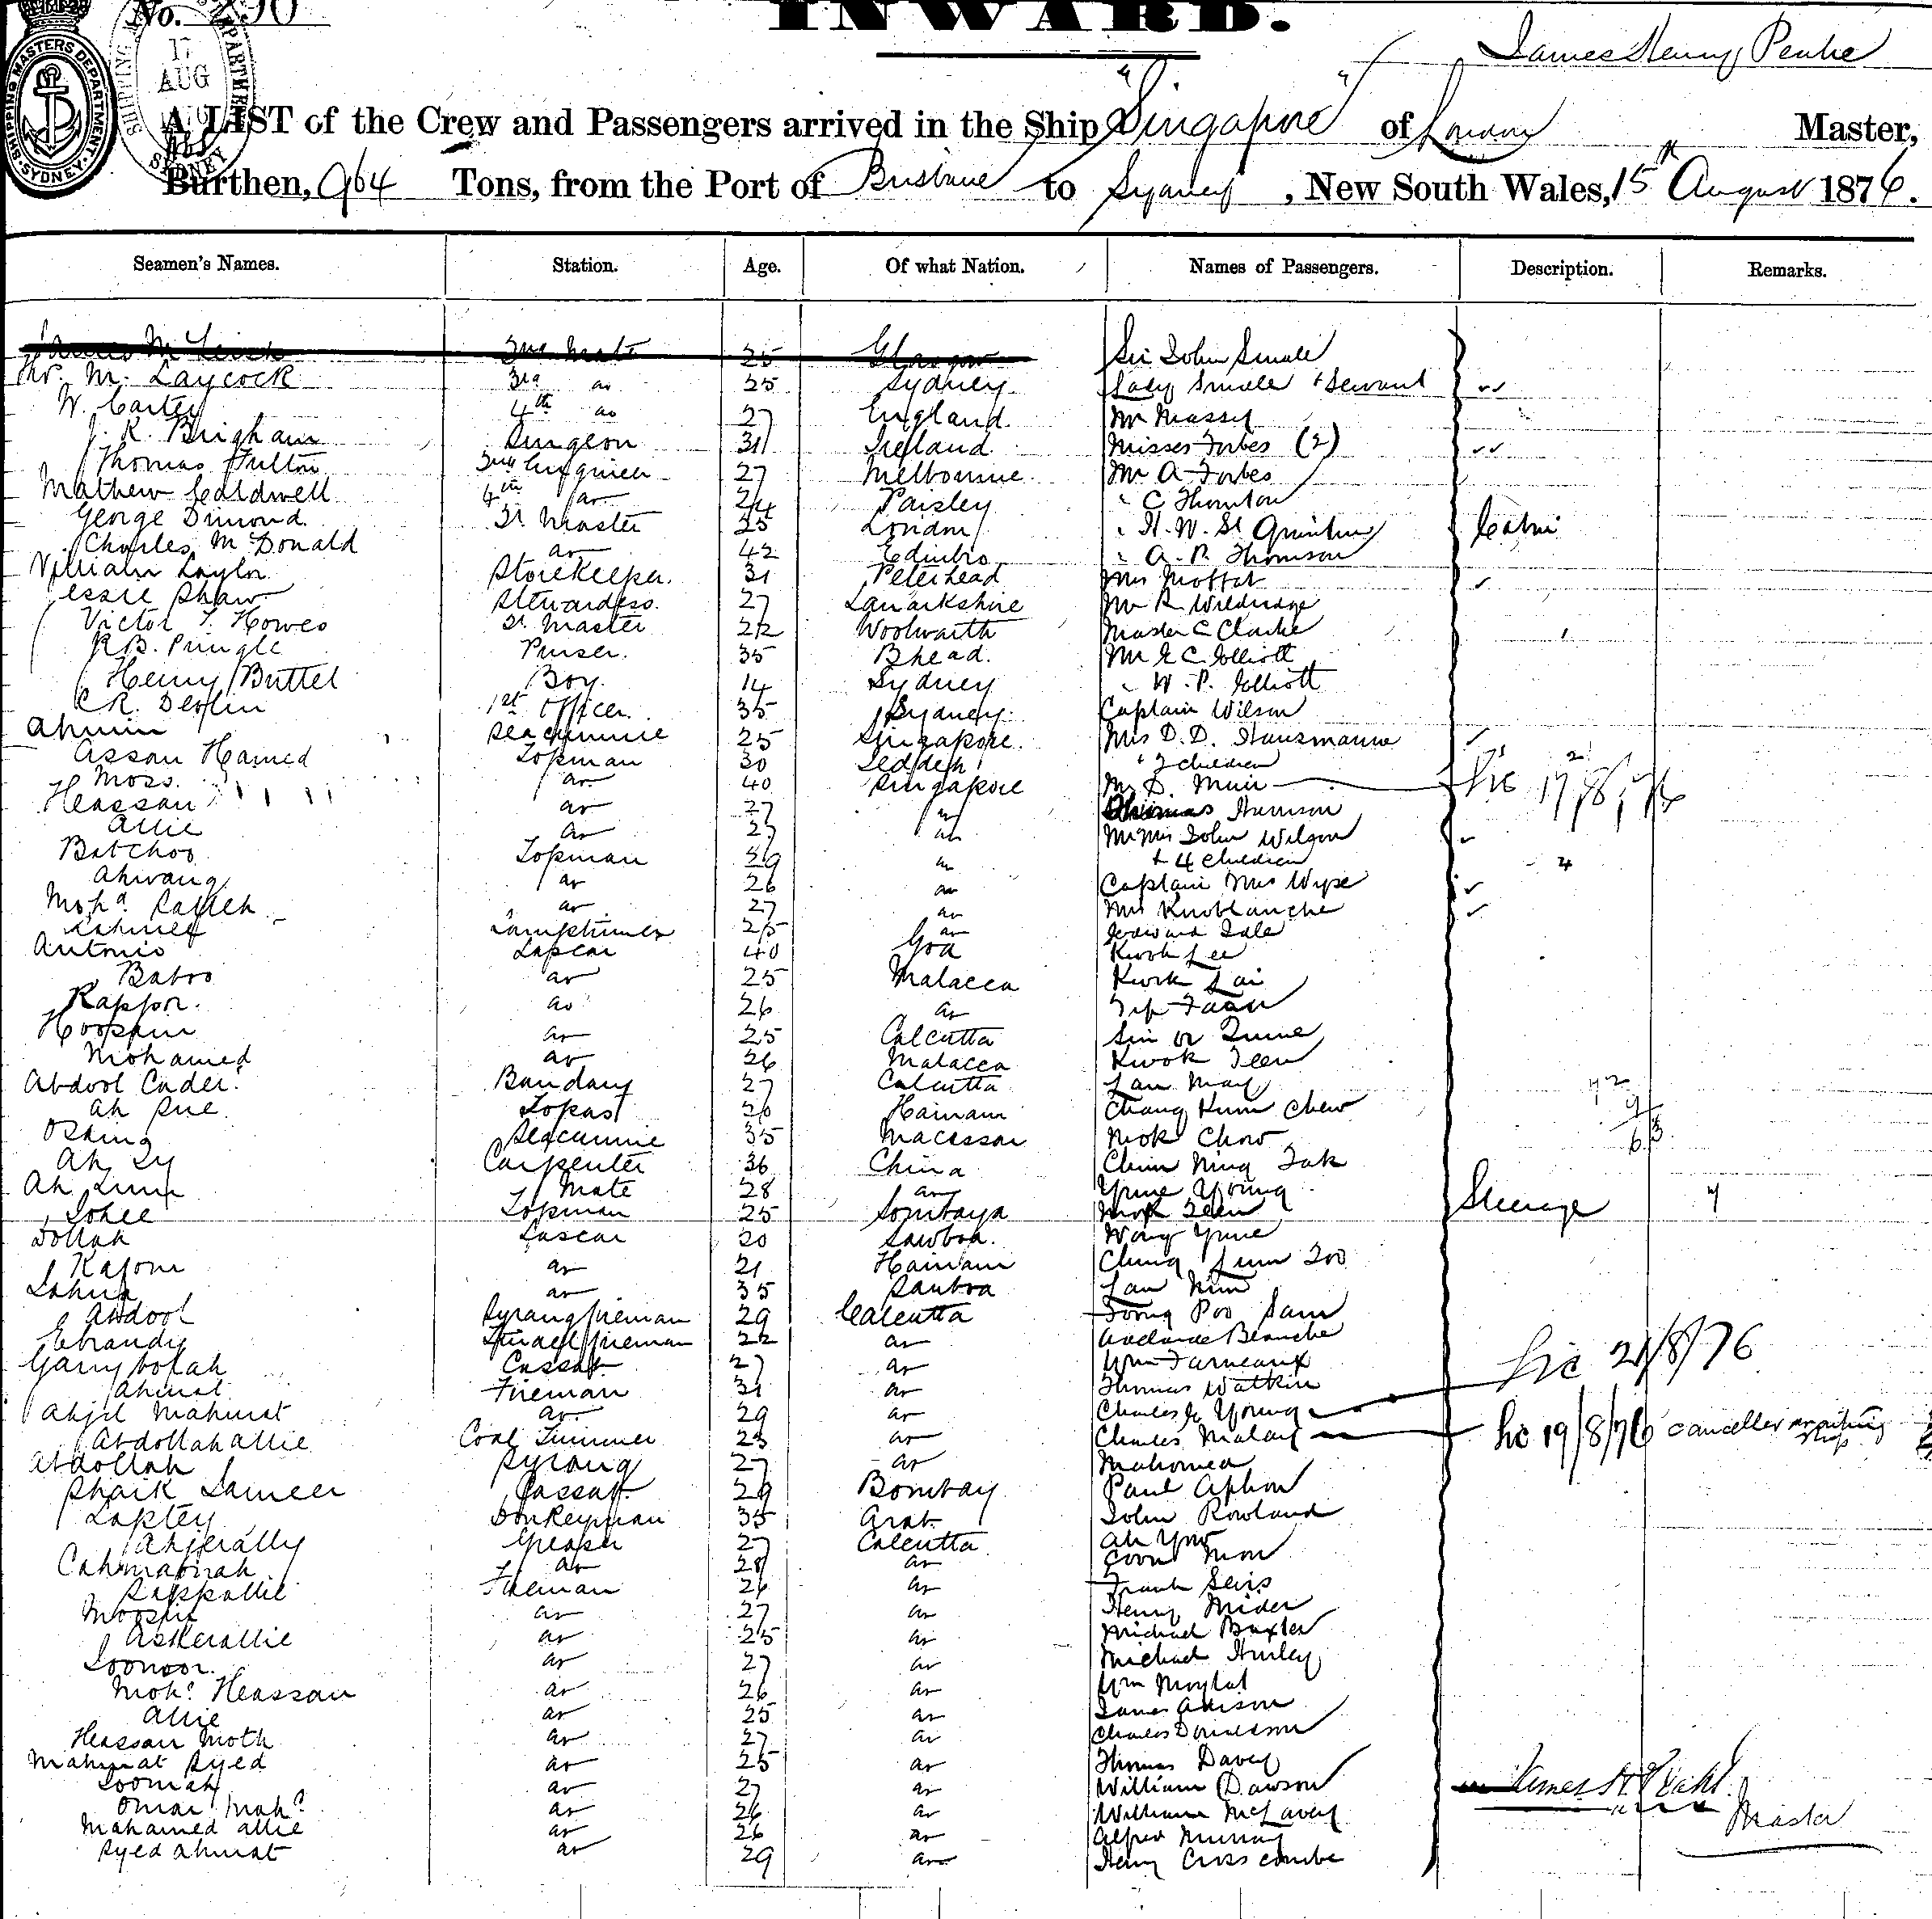 No. 290
INWARD.
SHIPPING MASTERS DEPARTMENT. SYDNEY.
17 AUG
SYDNEY
James Henry Peake
A LIST of the Crew and Passengers arrived in the Ship "Singapore" of London Master,
Burthen, 964 Tons, from the Port of Brisbane to Sydney, New South Wales, 15th August 1876.
Seamen's Names. Station. Age. Of what Nation. Names of Passengers. Description. Remarks.
2nd Mate 25 Glasgow Sir John Smale
M. Laycock 3rd do 25 Sydney Lady Smale & Servant
W. Carter 4th do 27 England Mr Massey
J. R. Brigham Surgeon 31 Ireland Misses Forbes (2)
Thomas Fulton 3rd Engineer 27 Melbourne Mr A Forbes
Mathew Caldwell 4th do 24 Paisley " C Thornton
George Dimond Qr Master 25 London " H. W. St Quintin Cabin
Charles McDonald do 42 Edinbro " A. P. Thomson
William Taylor Storekeeper. 31 Peterhead Mrs Moffat
Jessie Shaw Stewardess. 27 Lanarkshire Mr R Wildridge
Victor T. Howes Qr Master 22 Woolwaith Master C Clarke
R.B. Pringle Purser. 35 Bhead. Mr E C Elliott
Henry Buttel Boy. 14 Sydney " W. P. Elliott
C R. Devlin 1st Officer. 35 Sydney. Captain Wilson
Ahmin Seacunnie 25 Singapore. Mrs D. D. Hausmanne
Assan Hamed Topman 30 Jeddeh " 2 children 2
Moss. do 40 Singapore Mr D. Muir Lic 17/8/76
Heassan do 27 " Thomas Harrison
Allie do 27 do Mr Mrs John Wilson
Batchoo Topman 29 do & 4 children 4
Ahwang do 26 do Captain Mrs Wyse
Mohd Salleh do 27 do Mrs Knoblanche
Lamptrimer 25 do Edward Dale
Antonio Lascar 40 Goa Kwok Lee
Baboo do 25 Malacca Kwok Lai
Rappor. do 26 do Yip Faan
Hoosain do 25 Calcutta
Mohamed do 26 Malacca Kwok Teen
Abdool Cader. Bandary 27 Calcutta Lau May
Ah Sue. Topas Hainam Chang Kum Chew
Seacunnie 35 Macassar Mok Chow
Ah Carpenter 36 China Chun Ning Tak
Ah Lum Mate 28 do Yune Young
Sohee Topman 25 Sombaya Mok Teen Steerage
Dollah Lascar 20 Sawboa. Wong Yune
Kasom do 21 Hainam Chung Lum Too
do 35 Sauboa Lau Kim
Abdool Syrang fireman 29 Calcutta Foong Poo Sam
Ebrandy Tindel fireman 22 do Adelaide Blanche
Cassab 27 do Wm Farneaux
Ahmat Fireman 31 do Thomas Watkin Lic 21/8/76
Mahmat do 29 do Charles G Young
Abdollah allie Coal Trimmer 23 do Charles Malay Lic 19/8/76 cancelled
Abdollah Syrang 27 do Mahomed
Shaik Lameer Cassab 29 Bombay Paul Aphon
Laptey Donkeyman 35 Arab John Rowland
Ahserally Greaser 27 Calcutta Ah Yow
do 28 do Goon Mow
Rappallie Fireman 26 do Frank Seirs
do 27 do Henry Mider
Askerallie do 25 do Michael Baxter
Soonoor. do 27 do Michael Hurley
Mohd Heassan do 26 do Wm
Allie do 25 do James Adison
Heassan Moth do 27 do Charles Donaldson
Mahmat Syed do 25 do Thomas Davey
Soomah do 27 do William Dawson
Omar Mohd do 26 do William McLavey
Mahamed allie do 26 do Alfred Murray
Syed Ahmat do 29 do Henry Crosscombe
Master